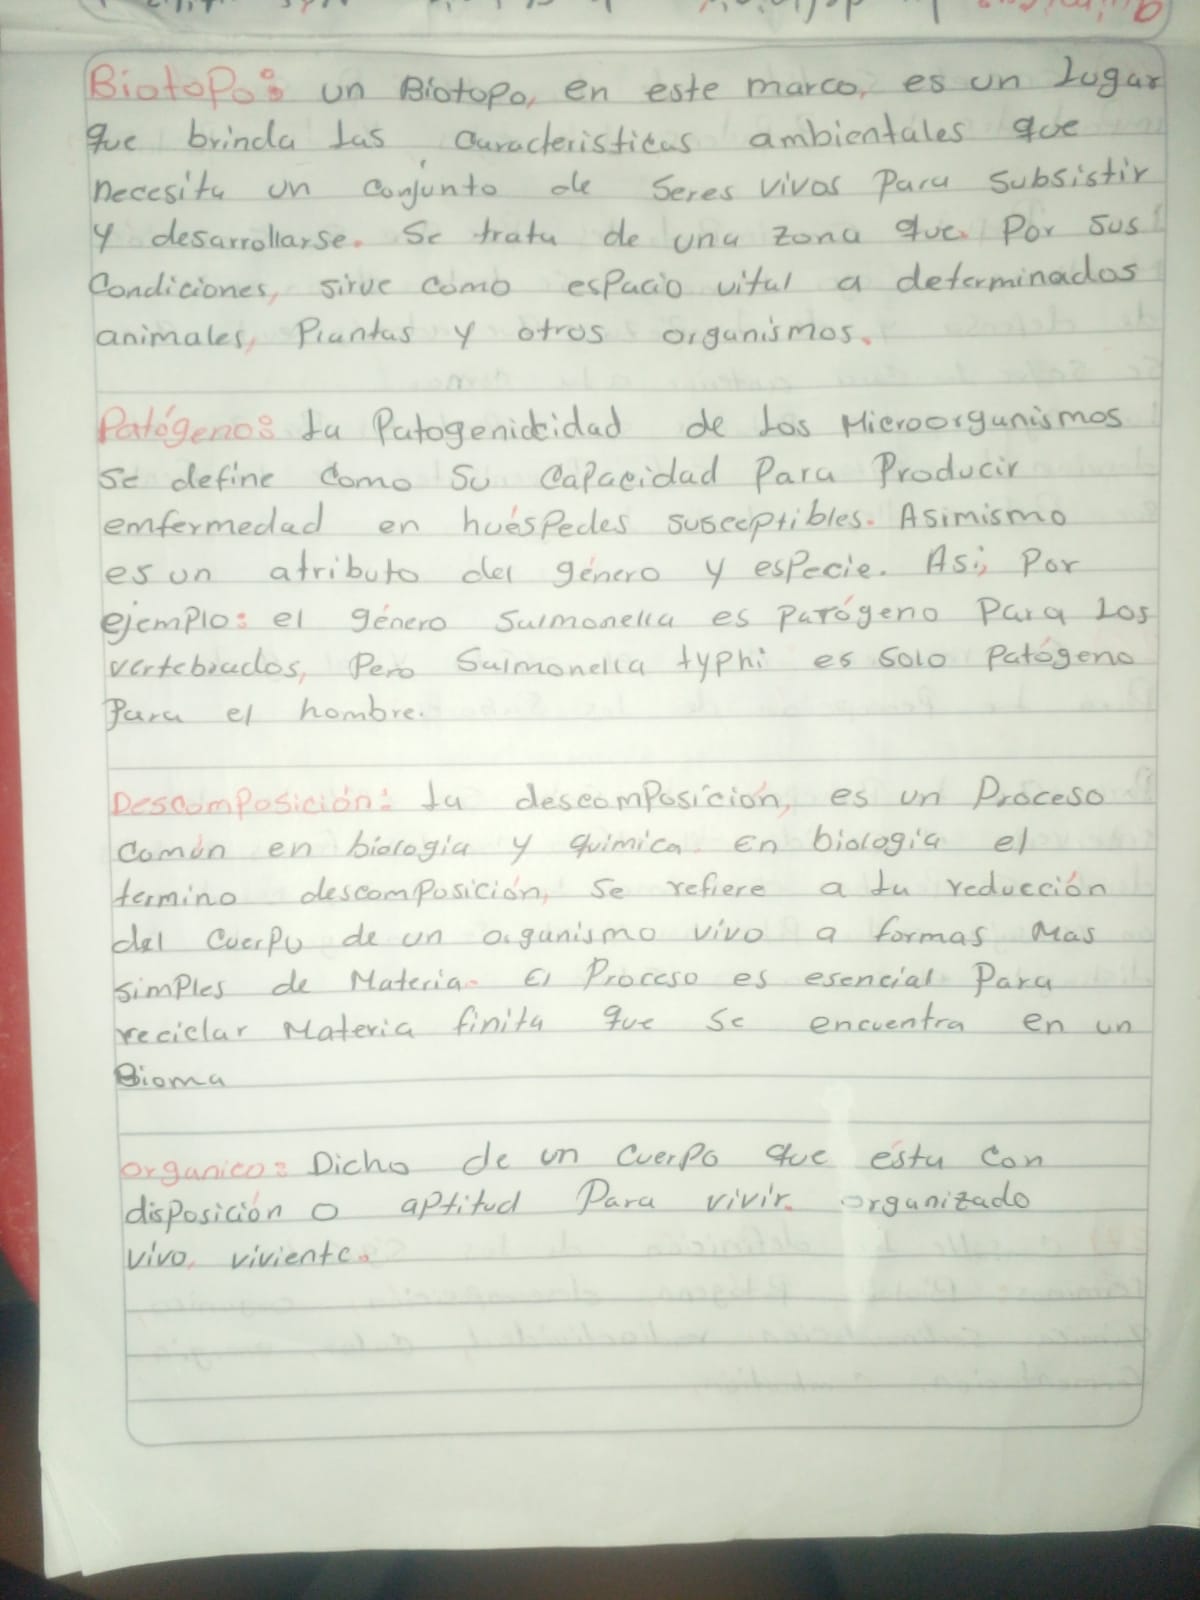 Biotopo: un Biotopo, en este marco, es un lugar
que brinda las caracteristicas ambientales que
necesita un conjunto de seres vivos para subsistir
y desarrollarse. Se trata de una zona que. Por sus
Condiciones, sirve como espacio vital a determinados
animales, Plantas y otros organismos.
Patógeno: La Patogenicidad de los Microorganismos
se define como su capacidad Para Producir
emfermedad en huéspedes susceptibles. Asimismo
es un atributo del género y especie. Asi, Por
ejemplo: el género Salmonella es patógeno Para Los
vertebrados, Pero Salmonella typhi es solo Patógeno
Para el hombre.
Descomposición: La descomposición, es un Proceso
común en biología y química. En biología el
termino descomposición, se refiere a la reducción
del cuerpo de un organismo vivo a formas Mas
simples de Materia. El Proceso es esencial Para
reciclar Materia finita que se encuentra en un
Bioma
organico: Dicho de un cuerpo que ésta con
disposición o aptitud Para vivir. organizado
vivo, viviente.